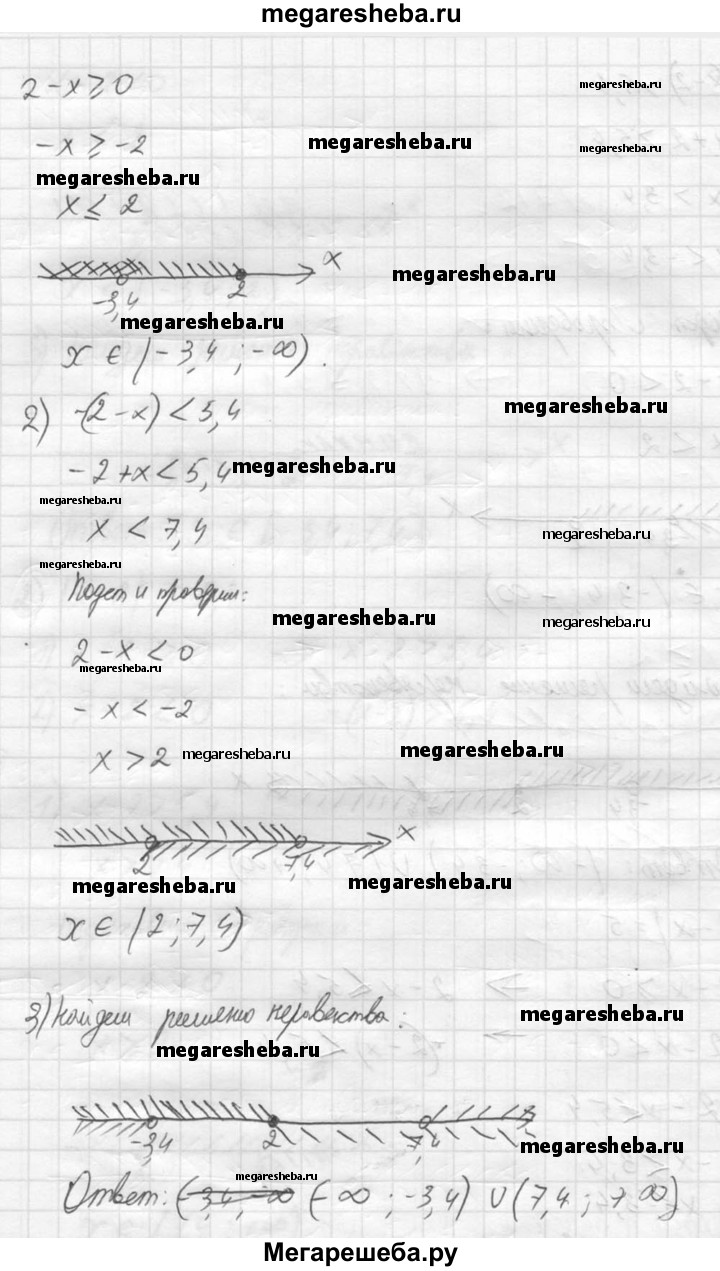 megaresheba.ru
2-x≥0
megaresheba.ru
-x≥-2
megaresheba.ru
megaresheba.ru
megaresheba.ru
x≤2
x
megaresheba.ru
-3,4 2
megaresheba.ru
x∈(-3,4;-∞).
megaresheba.ru
2) -(2-x)<5,4
-2+x<5,4
megaresheba.ru
megaresheba.ru
x<7,4
megaresheba.ru
megaresheba.ru
и проверим:
megaresheba.ru
megaresheba.ru
2-x<0
megaresheba.ru
-x<-2
x>2
megaresheba.ru
megaresheba.ru
x
2 7,4
megaresheba.ru
megaresheba.ru
x∈(2;7,4)
3) Найдем решению неравенства:
megaresheba.ru
megaresheba.ru
-3,4 2 7,4
megaresheba.ru
megaresheba.ru
Ответ: (-3,4;-∞ (-∞;-3,4) ∪ (7,4;+∞)
Мегарешеба.ру